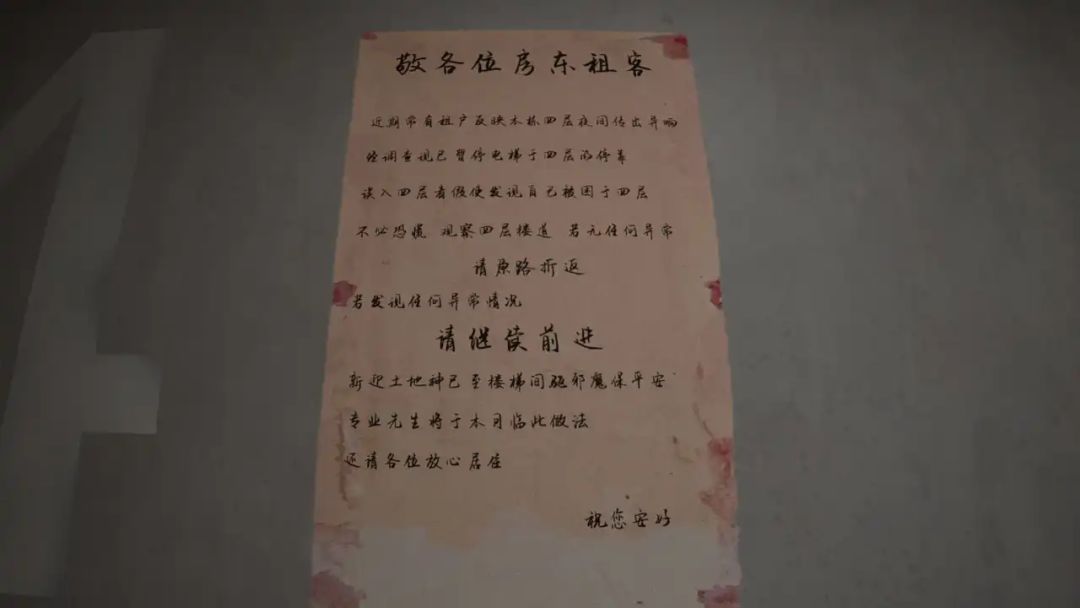 敬各位房东租客
近期常有租户反映本栋四层夜间传出异响
经调查现已暂停电梯于四层的停靠
误入四层者假使发现自己被困于四层
不必恐慌 观察四层楼道 若无任何异常
请原路折返
若发现任何异常情况
请继续前进
新迎土地神已至楼梯间驱邪魔保平安
专业先生将于本月临此做法
还请各位放心居住
祝您安好